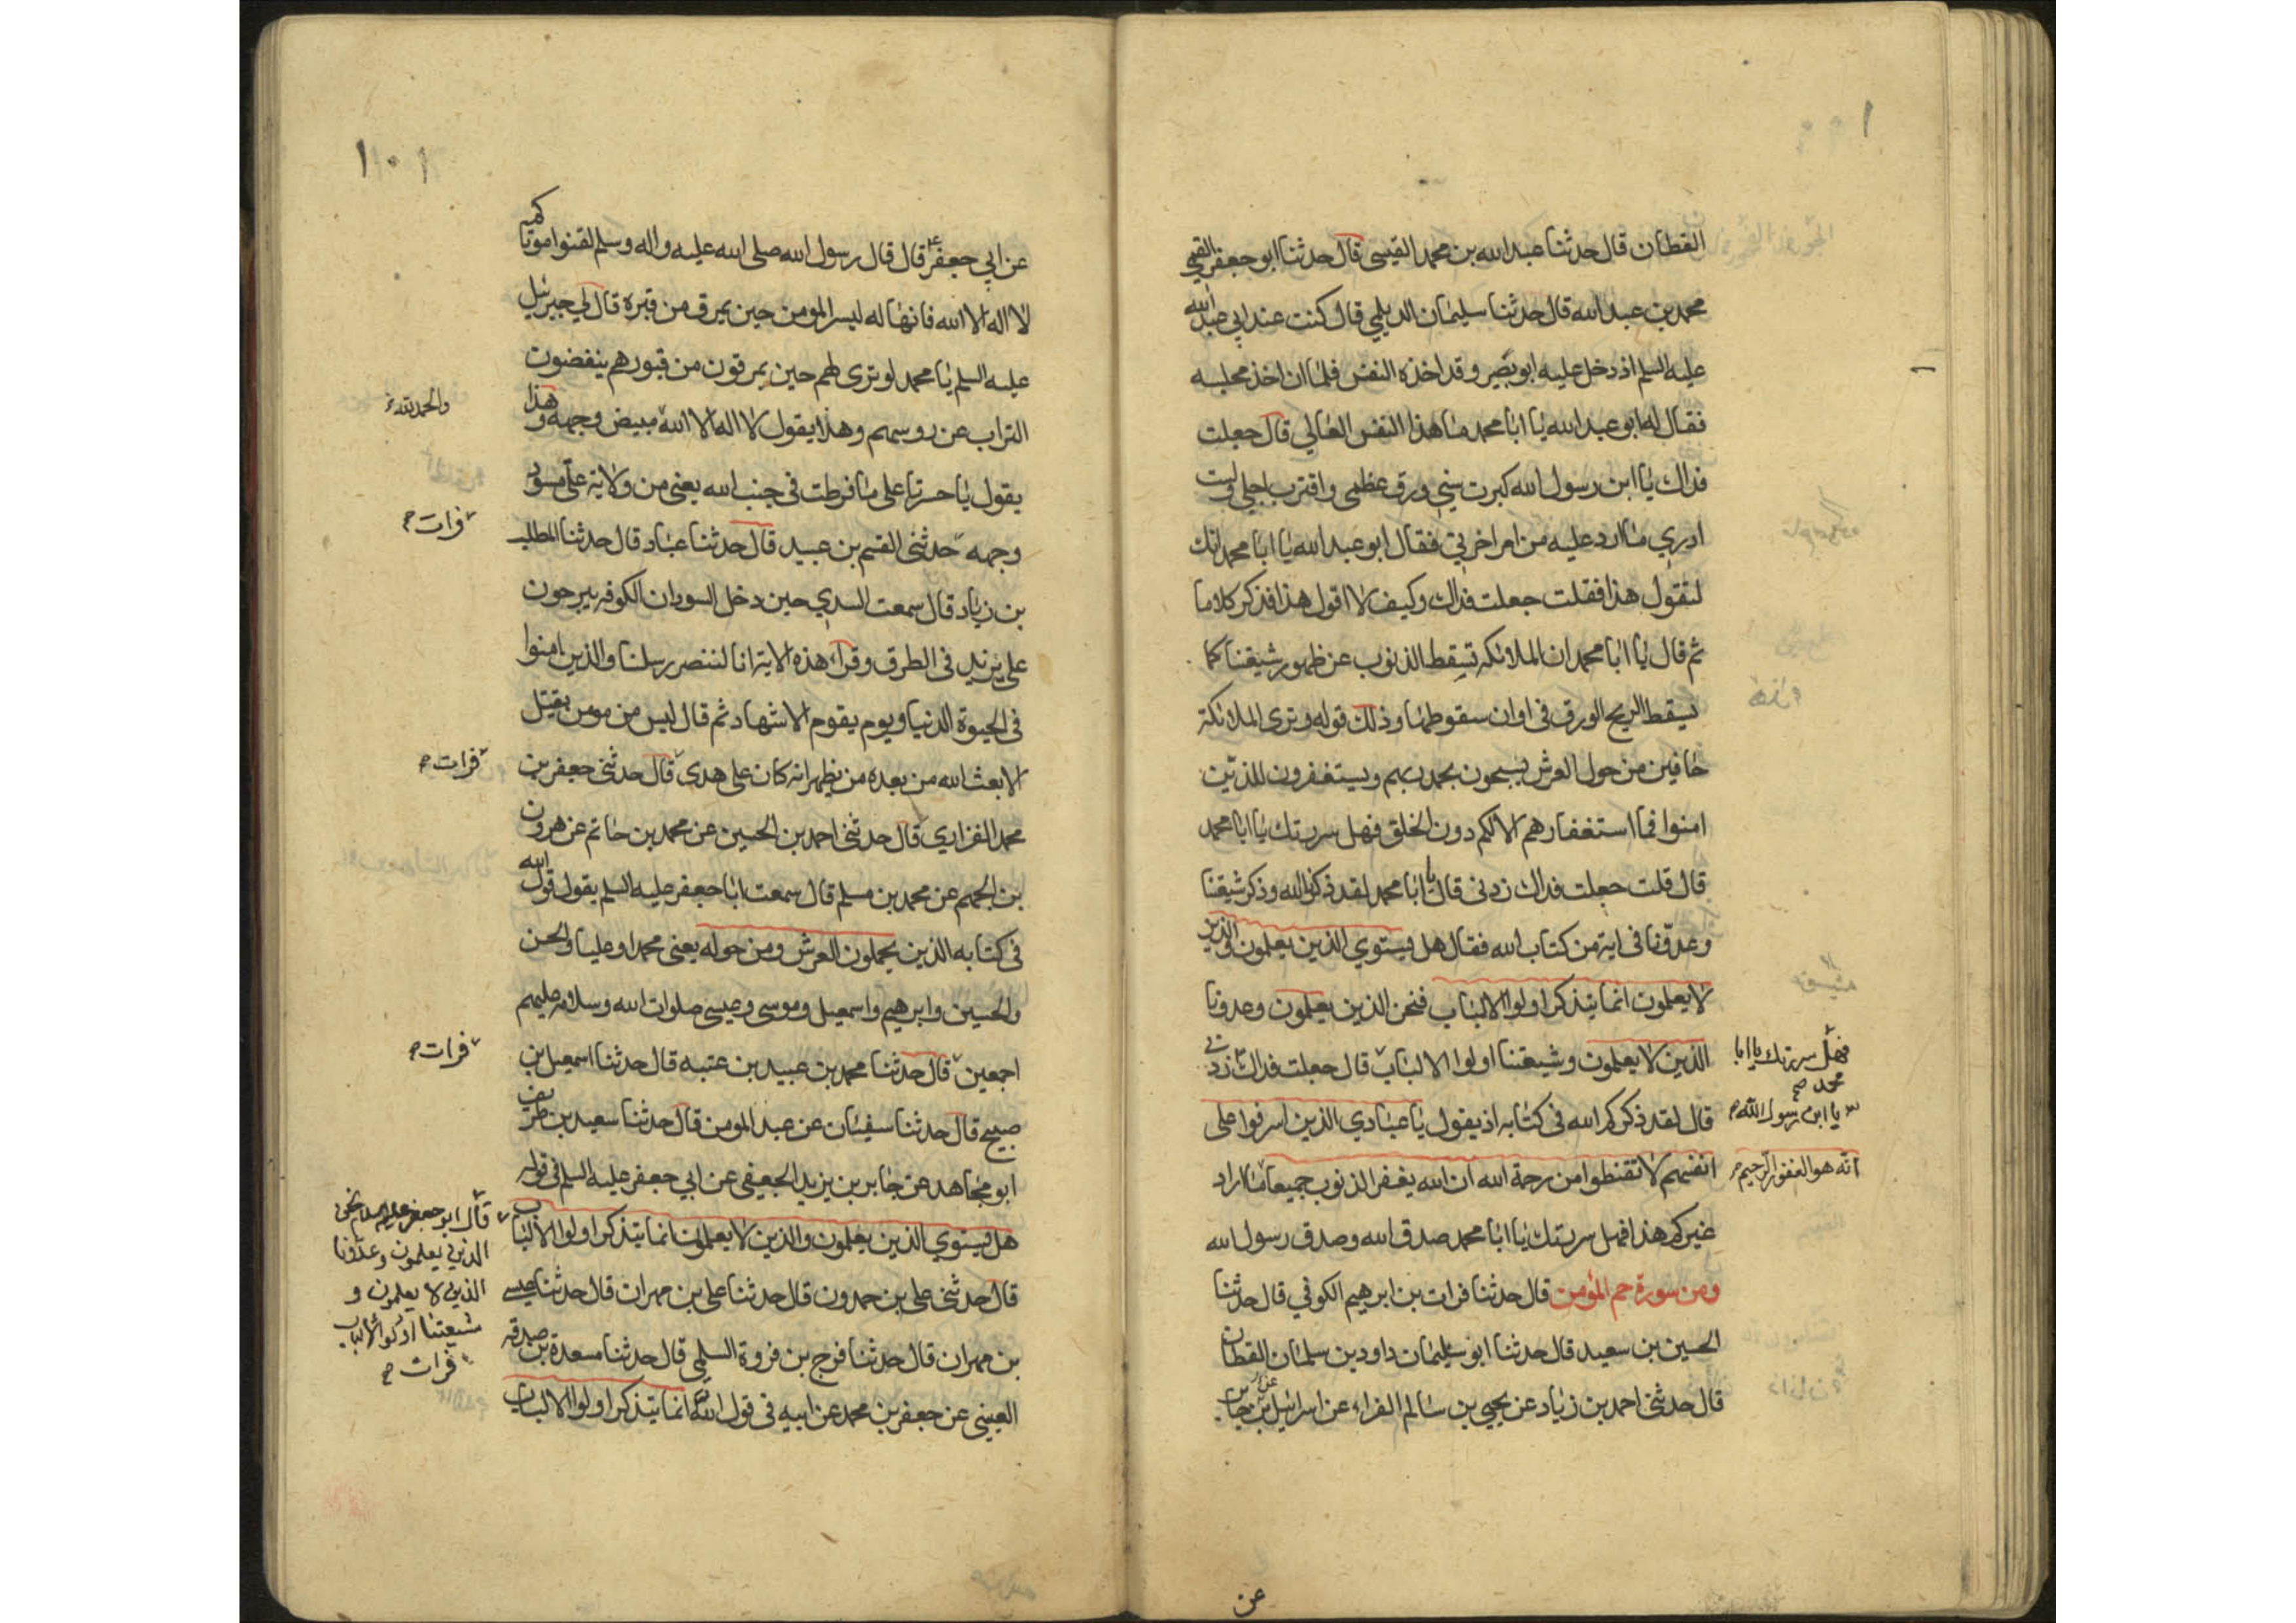 القطان قال حدثنا عبد الله بن محمد القيسي قال حدثنا ابو جعفر القمي
محمد بن عبد الله قال حدثنا سليمان الديلمي قال كنت عند ابي عبد الله
عليه السلم اذ دخل عليه ابو بصير وقد اخذه النفس فلما ان اخذ مجلسه
فقال له ابو عبد الله يا ابا محمد ما هذا النفس العالي قال جعلت
فداك يا ابن رسول الله كبرت سني ورق عظمي واقترب اجلي ولست
ادري ما ارد عليه من امر اخرتي فقال ابو عبد الله يا ابا محمد انك
لتقول هذا فقلت جعلت فداك وكيف لا اقول هذا فذكر كلاما
ثم قال يا ابا محمد ان الملائكة تسقط الذنوب عن ظهور شيعتنا كما
تسقط الريح الورق في اوان سقوطها وذلك قوله وترى الملائكة
حافين من حول العرش يسبحون بحمد ربهم ويستغفرون للذين
امنوا فما استغفارهم الا لكم دون الخلق فهل سررتك يا ابا محمد
قال قلت جعلت فداك زدني قال يا ابا محمد لقد ذكرنا الله وذكر شيعتنا
وعدونا في اية من كتاب الله فقال هل يستوي الذين يعلمون والذين
لا يعلمون انما يتذكر اولوا الالباب فنحن الذين يعلمون وعدونا
الذين لا يعلمون وشيعتنا اولوا الالباب قال جعلت فداك زدني
قال لقد ذكركم الله في كتابه اذ يقول يا عبادي الذين اسرفوا على
انفسهم لا تقنطوا من رحمة الله ان الله يغفر الذنوب جميعا ما اراد
غيركم هذا فهل سررتك يا ابا محمد صدق الله وصدق رسول الله
ومن سورة حم المؤمن قال حدثنا فرات بن ابرهيم الكوفي قال حدثنا
الحسين بن سعيد قال حدثنا ابو سليمان داود بن سليمان القطان
قال حدثني احمد بن زياد عن يحيى بن سالم الفراء عن اسرائيل عن جابر
فهل سررتك يا ابا
محمد صح
يا ابن رسول الله
انه هو الغفور الرحيم
عن
١٠١
عن ابي جعفر ع قال قال رسول الله صلى الله عليه واله وسلم لقنوا موتاكم
لا اله الا الله فانها له ليسر المومن حين يمرق من قبره قال لي جبرئيل
عليه السلم يا محمد لو ترى لهم حين يمرقون من قبورهم ينفضون
التراب عن روسهم وهذا يقول لا اله الا الله مبيض وجهه وهذا
يقول يا حسرتا على ما فرطت في جنب الله يعني من ولاية علي مسود
وجهه حدثني القسم بن عبيد قال حدثنا عباد قال حدثنا المطلب
بن زياد قال سمعت السدي حين دخل السودان الكوفه يبرجون
على يزيد في الطرق وقراء هذه الاية انا لننصر رسلنا والذين امنوا
في الحيوة الدنيا ويوم يقوم الاشهاد ثم قال ليس من مومن يقتل
الا بعث الله من بعده من يظهر انه كان على هدى قال حدثني جعفر بن
محمد الفزاري قال حدثني احمد بن الحسين عن محمد بن حاتم عن هرون
بن الجهم عن محمد بن مسلم قال سمعت ابا جعفر عليه السلم يقول قول الله
في كتابه الذين يحملون العرش ومن حوله يعني محمدا وعليا والحسن
والحسين وابرهيم واسمعيل وموسى وعيسى صلوات الله وسلامه عليهم
اجمعين قال حدثنا محمد بن عبيد بن عتبه قال حدثنا اسمعيل بن
صبيح قال حدثنا سفيان عن عبد المومن قال حدثنا سعيد بن طريف
ابو مجاهد عن جابر بن يزيد الجعفي عن ابي جعفر عليه السلم في قوله
هل يستوي الذين يعلمون والذين لا يعلمون انما يتذكر اولوا الالباب
قال حدثني علي بن حمدون قال حدثنا علي بن مهران قال حدثنا عيسى
بن مهران قال حدثنا فرج بن فروة السلمي قال حدثنا مسعدة بن صدقه
العبسي عن جعفر بن محمد عن ابيه في قول الله انما يتذكر اولوا الالباب
والحمد لله
فرات
فرات
فرات
قال ابو جعفر عليه السلم نحن
الذين يعلمون وعدونا
الذين لا يعلمون و
شيعتنا اولوا الالباب
فرات